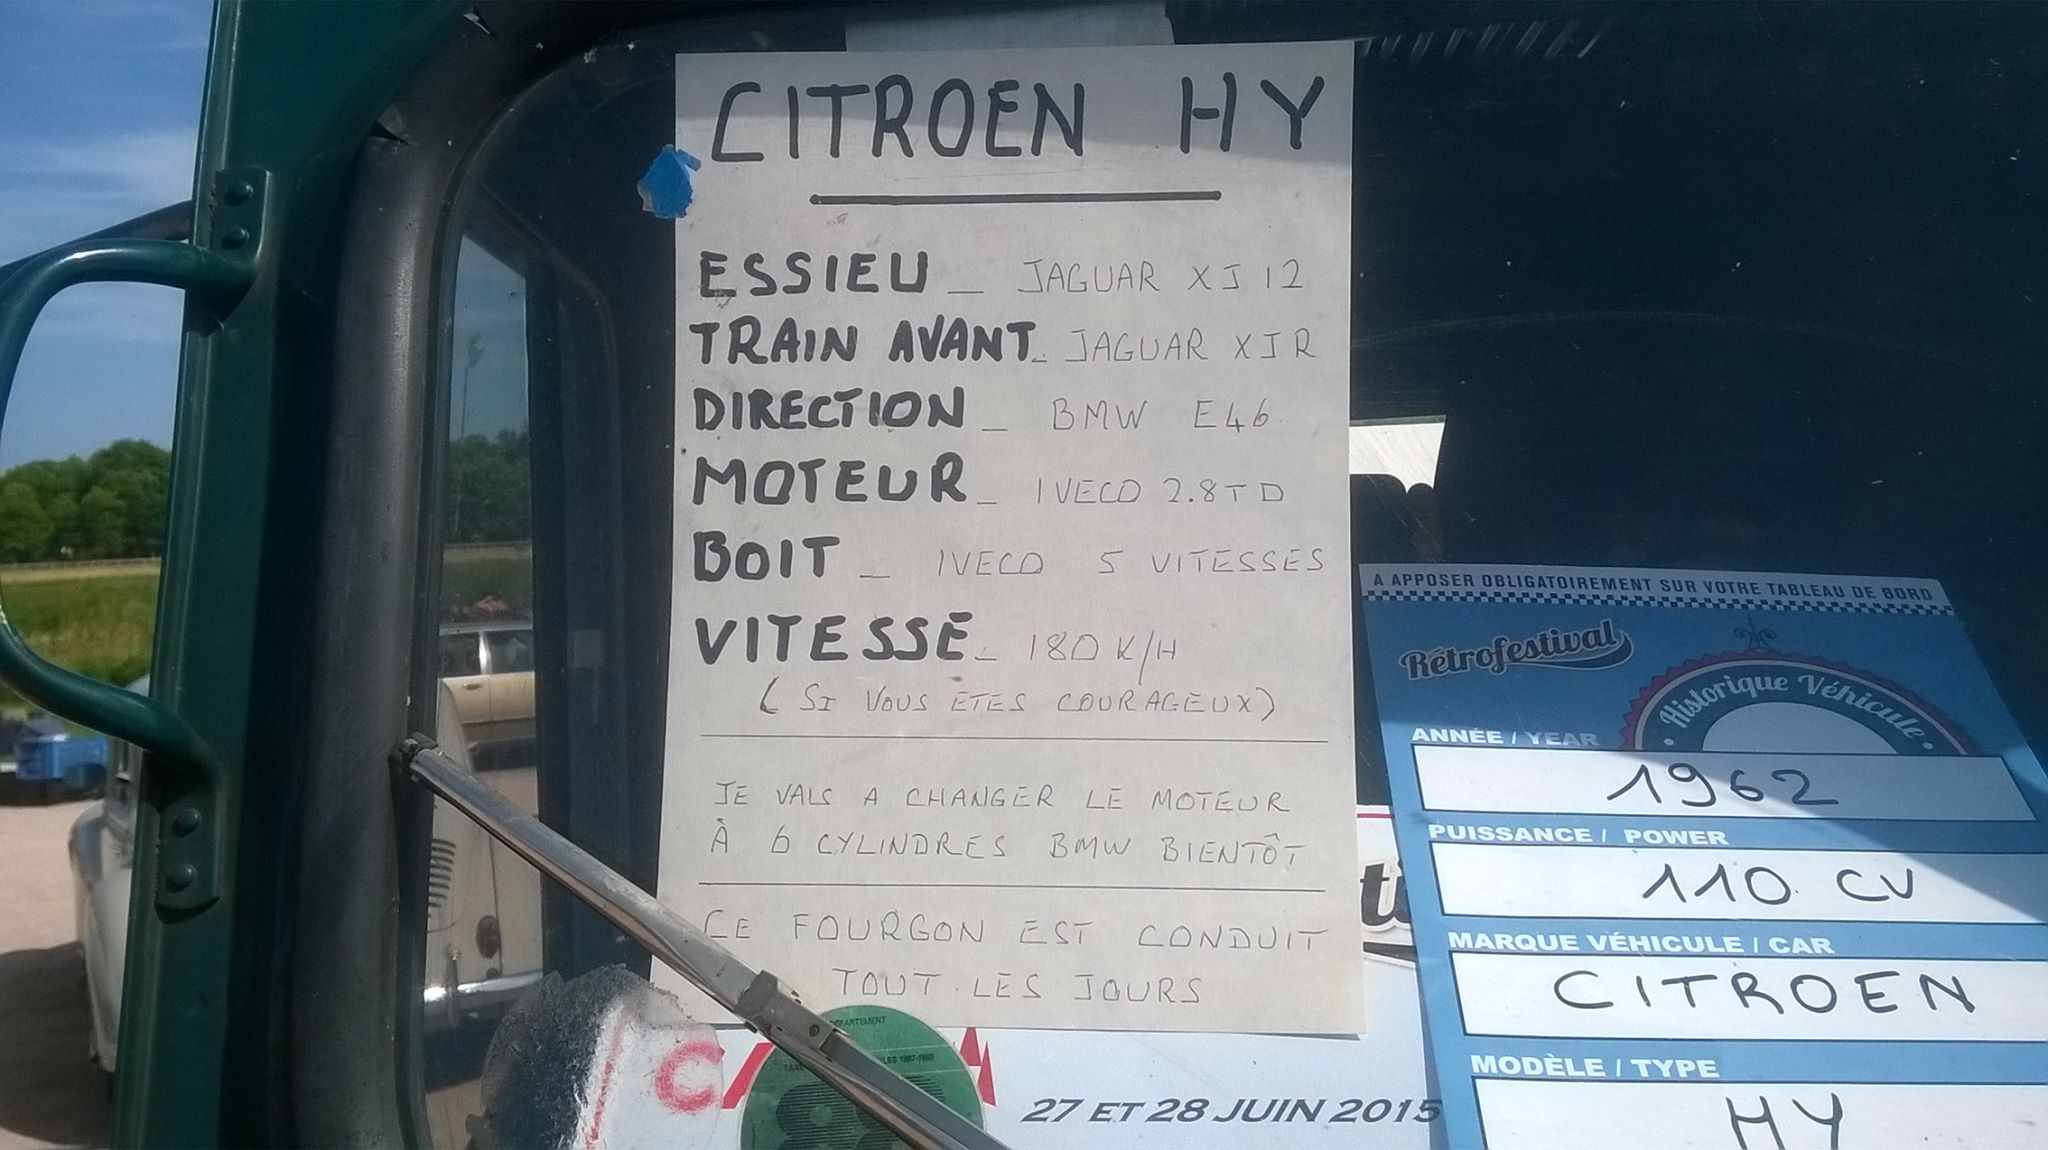 CITROEN HY
ESSIEU _ JAGUAR XJ 12
TRAIN AVANT _ JAGUAR XJR
DIRECTION _ BMW E46
MOTEUR _ IVECO 2.8 TD
BOIT _ IVECO 5 VITESSES
VITESSE _ 180 K/H
( SI VOUS ETES COURAGEUX)
JE VAIS A CHANGER LE MOTEUR
À 6 CYLINDRES BMW BIENTÔT
CE FOURGON EST CONDUIT
TOUT LES JOURS
A APPOSER OBLIGATOIREMENT SUR VOTRE TABLEAU DE BORD
Rétrofestival
• Historique Véhicule •
ANNÉE / YEAR
1962
PUISSANCE / POWER
110 CV
MARQUE VÉHICULE / CAR
CITROEN
MODÈLE / TYPE
HY
DÉPARTEMENT
27 ET 28 JUIN 2015